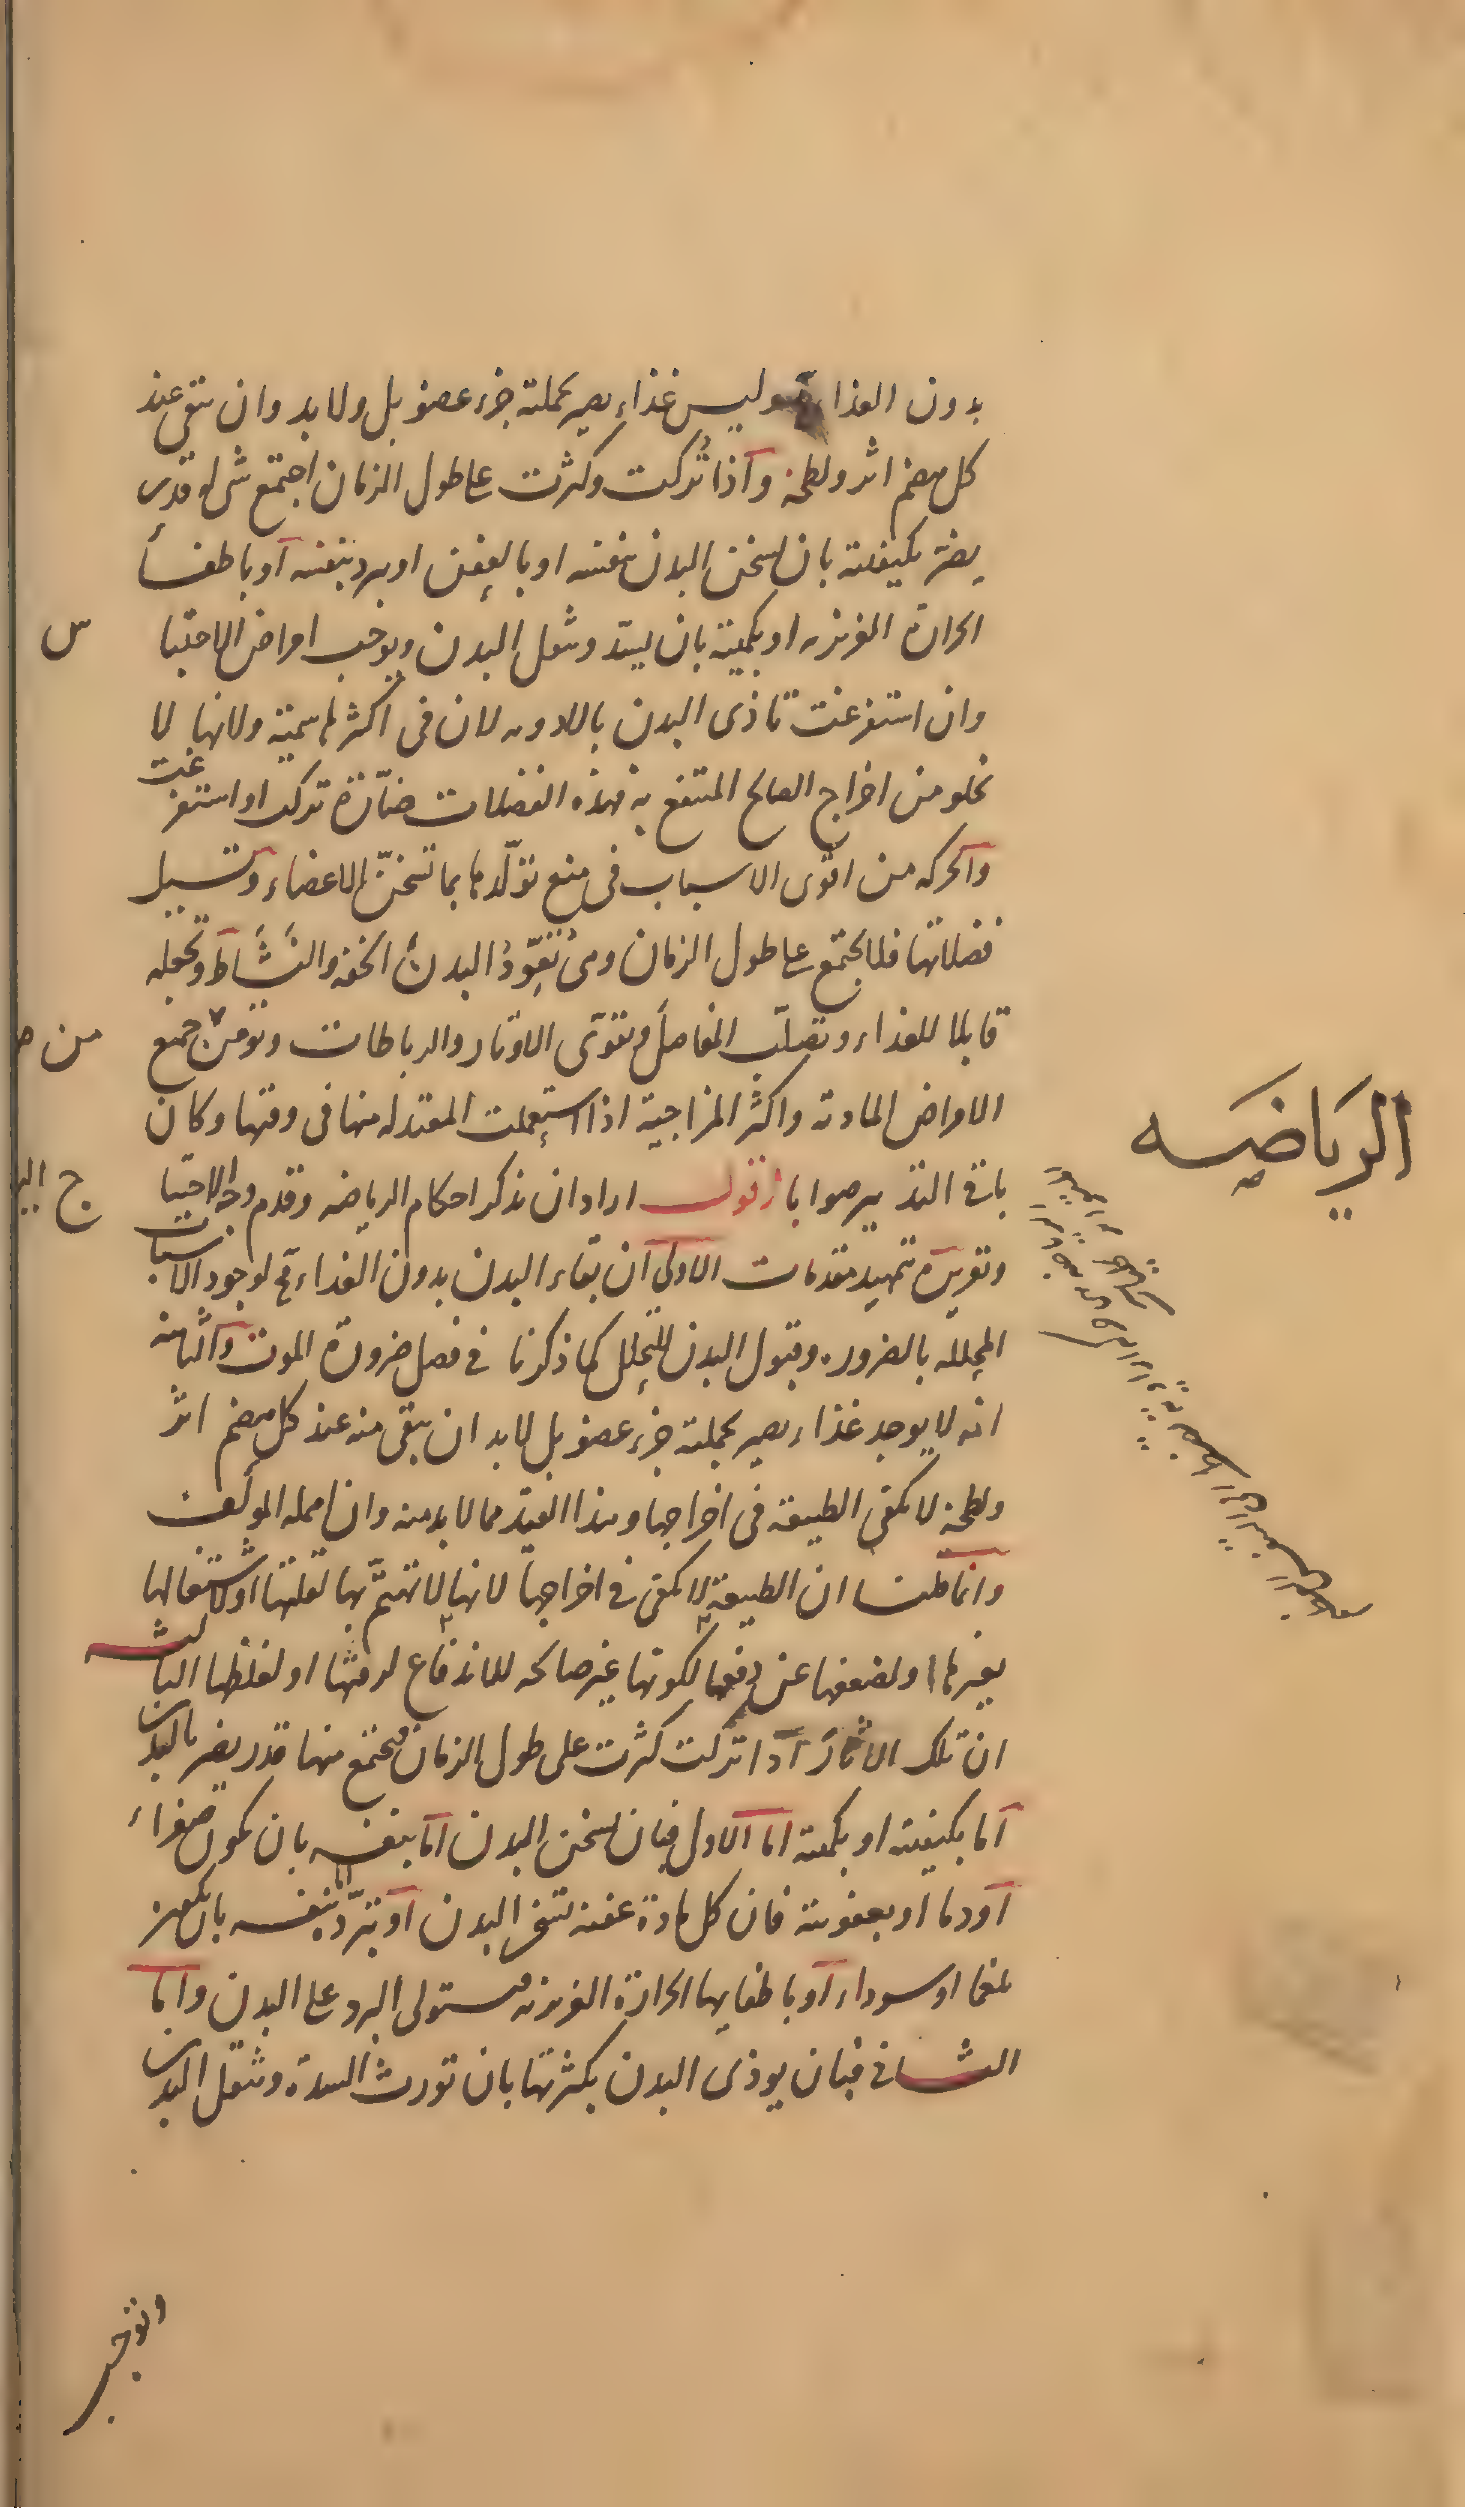 بدون الغذاء محال وليس غذاء يصير بجملته جزء عضو بل ولا بد وان يبقى عند
كل هضم اثر ولطخة واذا تركت وكثرت على طول الزمان اجتمع شئ له قدر
يضر بكيفيته بان يسخن البدن بنفسه او بالعفن او يبرد بنفسه او باطفاء
الحرارة الغريزيه او بكميته بان يسدد ويثقل البدن ويوجب امراض الاحتبا
س
وان استفرغت تاذى البدن بالادويه لان في اكثرها سمية ولانها لا
تخلو من اخراج الصالح المنتفع به فهذه الفضلات ضارة تركت او استفرغت
والحركه من اقوى الاسباب في منع تولدها بما تسخن الاعضاء وتسيل
فضلاتها فلا يجتمع على طول الزمان وهى تعود البدن الخفه والنشاط وتجعله
قابلا للغذاء وتصلب المفاصل وتقوى الاوتار والرباطات وتومن من جميع
الامراض المادية واكثر المزاجية اذا استعملت المعتدله منها في وقتها وكان
باقي التدبير صوابا اقول اراد ان يذكر احكام الرياضه وقدم وجه الاحتيا
ج
وتقريره بتمهيد مقدمات الاولى ان بقاء البدن بدون الغذاء مح لوجود الاسباب
المحلله بالضروره وقبول البدن للتحلل كما ذكرنا في فصل ضرورة الموت والثانيه
انه لا يوجد غذاء يصير بجملته جزء عضو بل لا بد ان يبقى منه عند كل هضم اثر
ولطخة لا تكفى الطبيعة في اخراجها وهذا القيد مما لا بد منه وان اهمله المولف
وانما قلنا ان الطبيعة لا تكفى في اخراجها لانها لا تهتم بها لقلتها او لاشتغالها
بغيرها او لضعفها عن دفعها لكونها غير صالحه للاندفاع لرقتها او لغلظها الثالث
ان تلك الاثار اذا تركت كثرت على طول الزمان فيجتمع منها قدر يضر بالبدن
اما بكيفيته او بكميته اما الاول فبان يسخن البدن اما بنفسه بان يكون صفراء
او دما او بعفونته فان كل مادة عفنة تسخن البدن او تبرد اما بنفسه بان يكون
بلغما او سوداء او باطفايها الحرارة الغريزيه فيستولى البرد على البدن واما
الثاني فبان يوذى البدن بكثرتها بان تورث السدة وتثقل البدن
الرياضه
وتوجب